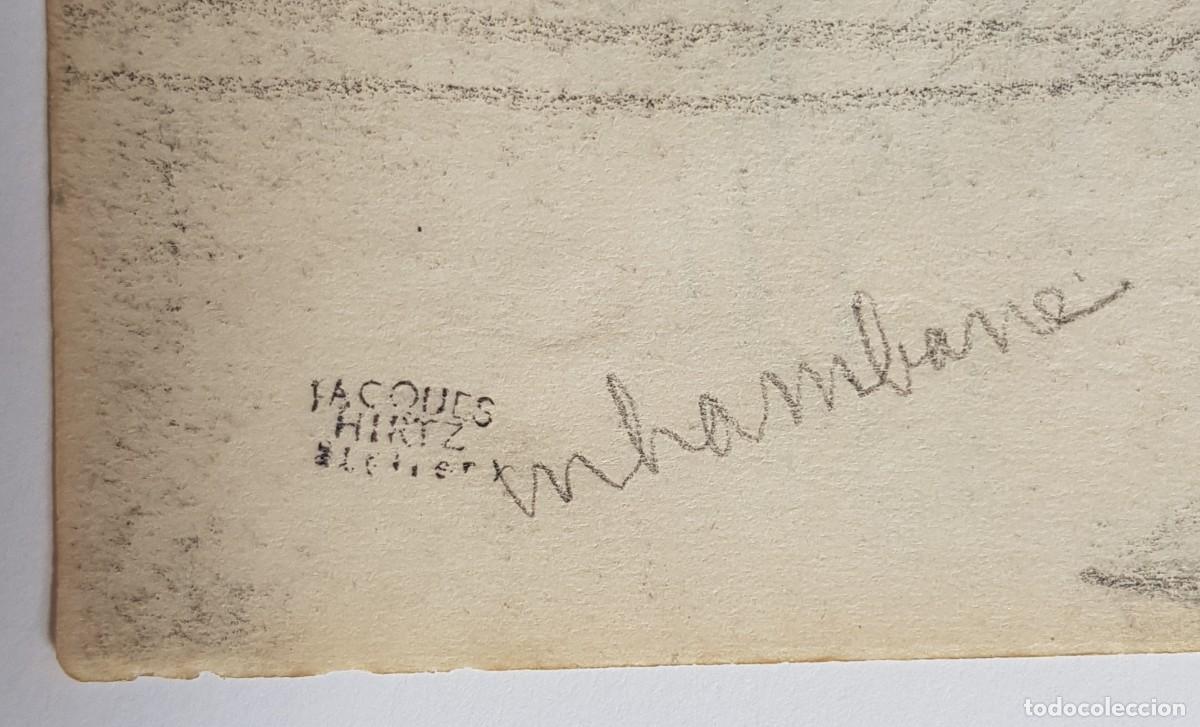 JACQUES
HIRTZ
atelier
inhambane
todocoleccion